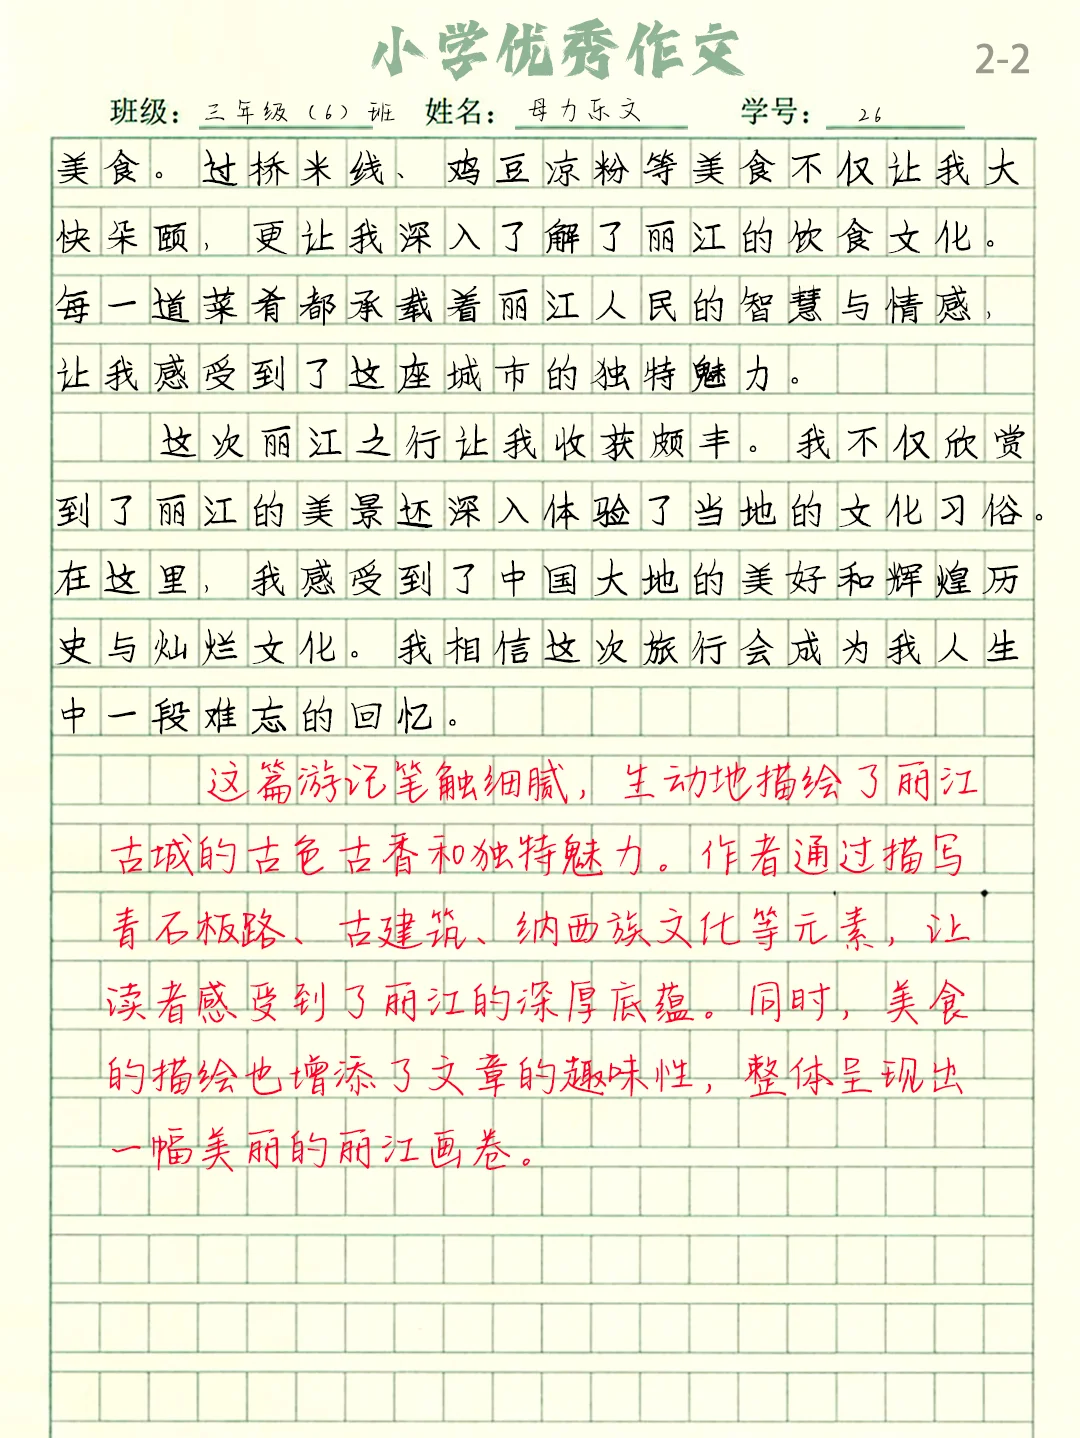 小学优秀作文
2-2
班级：三年级（6）班 姓名：母力乐文 学号：26
美食。过桥米线、鸡豆凉粉等美食不仅让我大
快朵颐，更让我深入了解了丽江的饮食文化。
每一道菜肴都承载着丽江人民的智慧与情感，
让我感受到了这座城市的独特魅力。
这次丽江之行让我收获颇丰。我不仅欣赏
到了丽江的美景还深入体验了当地的文化习俗。
在这里，我感受到了中国大地的美好和辉煌历
史与灿烂文化。我相信这次旅行会成为我人生
中一段难忘的回忆。
这篇游记笔触细腻，生动地描绘了丽江
古城的古色古香和独特魅力。作者通过描写
青石板路、古建筑、纳西族文化等元素，让
读者感受到了丽江的深厚底蕴。同时，美食
的描绘也增添了文章的趣味性，整体呈现出
一幅美丽的丽江画卷。